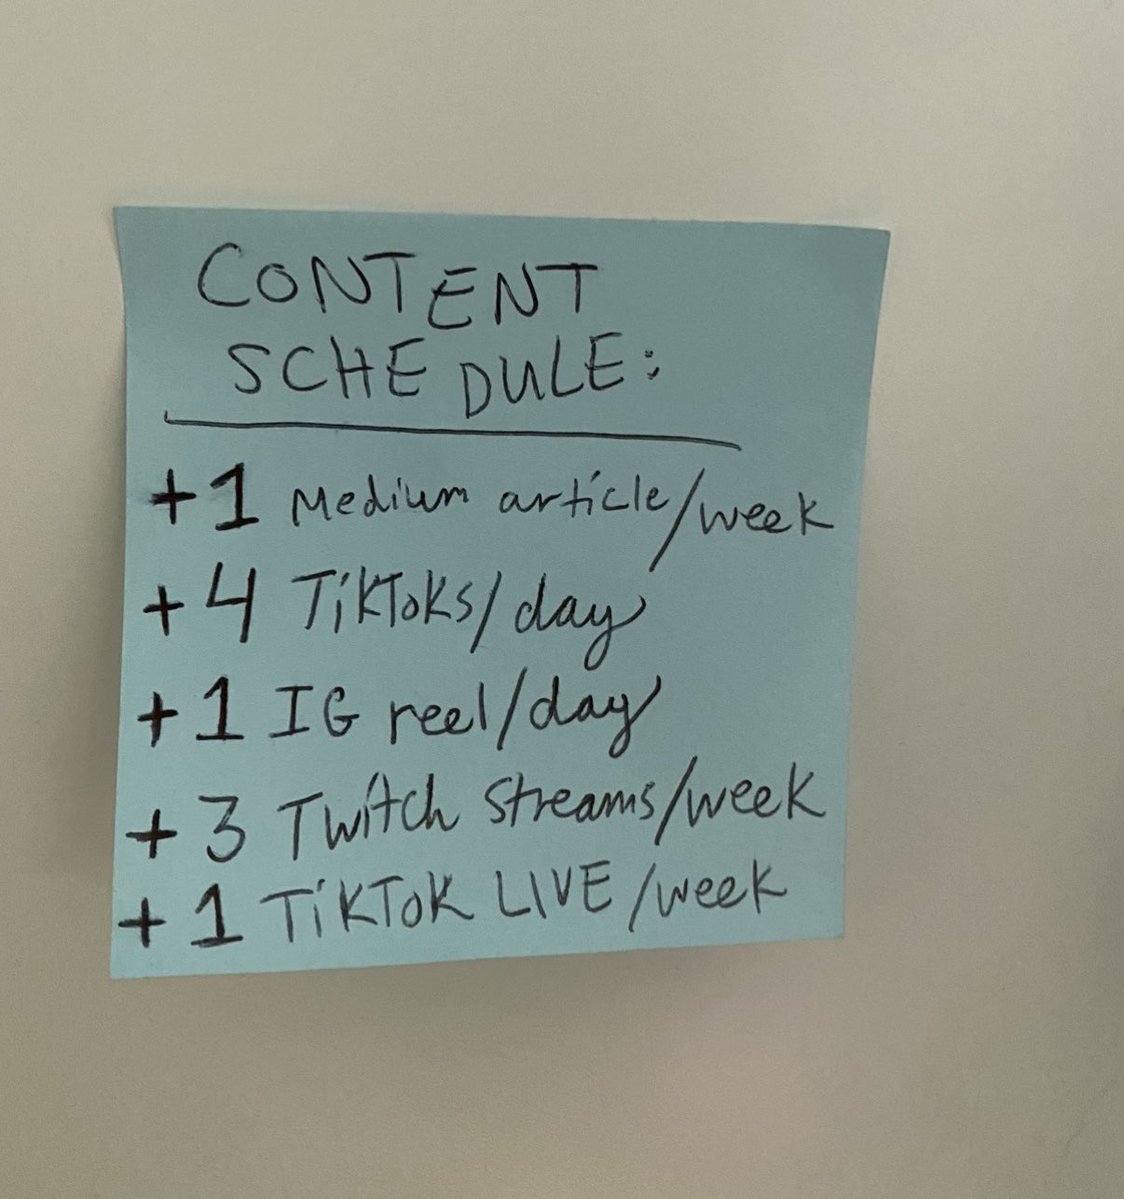 CONTENT
SCHEDULE:
+1 Medium article/week
+4 TikToks/day
+1 IG reel/day
+3 Twitch streams/week
+1 TikTok LIVE/week